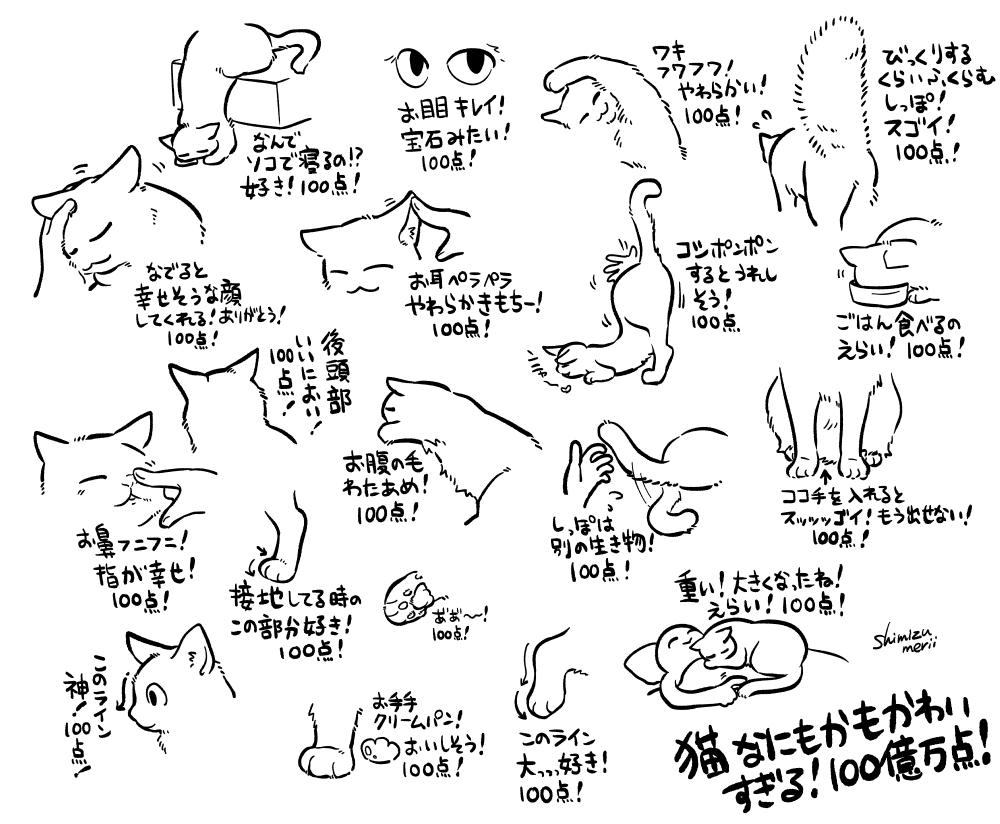 なんで
ソコで寝るの!?
好き!100点!
お目目キレイ!
宝石みたい!
100点!
ワキ
フワフワ!
やわらかい!
100点!
びっくりする
くらいふくらむ
しっぽ!
スゴイ!
100点!
なでると
幸せそうな顔
してくれる!ありがとう!
100点!
お耳ペラペラ
やわらかきもちー!
100点!
コシポンポン
するとうれし
そう!
100点
ごはん食べるの
えらい!100点!
後頭部
いいにおい!
100点!
お鼻フニフニ!
指が幸せ!
100点!
お腹の毛
わたあめ!
100点!
しっぽは
別の生き物!
100点!
ココ手を入れると
スッッッゴイ!もう出せない!
100点!
接地してる時の
この部分好き!
100点!
ああ〜!
100点!
重い!大きくなったね!
えらい!100点!
Shimizu
merii
このライン
神!
100点!
お手手
クリームパン!
おいしそう!
100点!
このライン
大っっ好き!
100点!
猫なにもかもかわい
すぎる!100億万点!